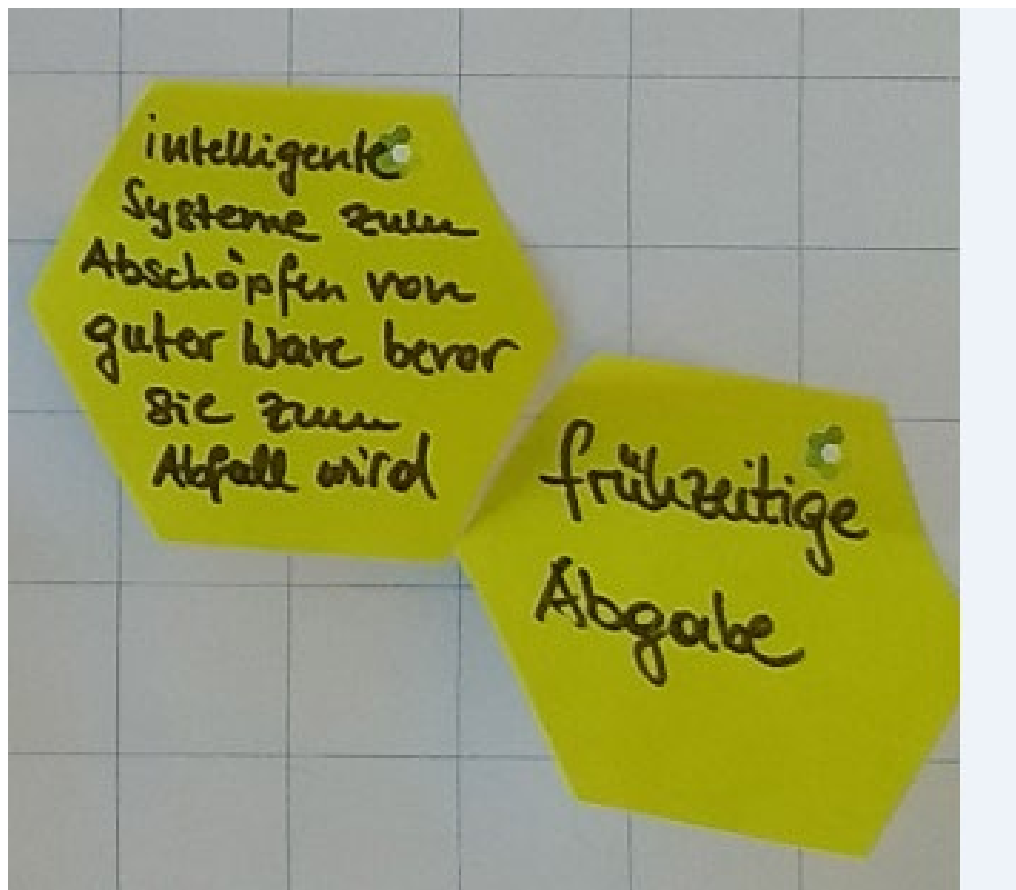 intelligente
Systeme zum
Abschöpfen von
guter Ware bevor
sie zum
Abfall wird
frühzeitige
Abgabe